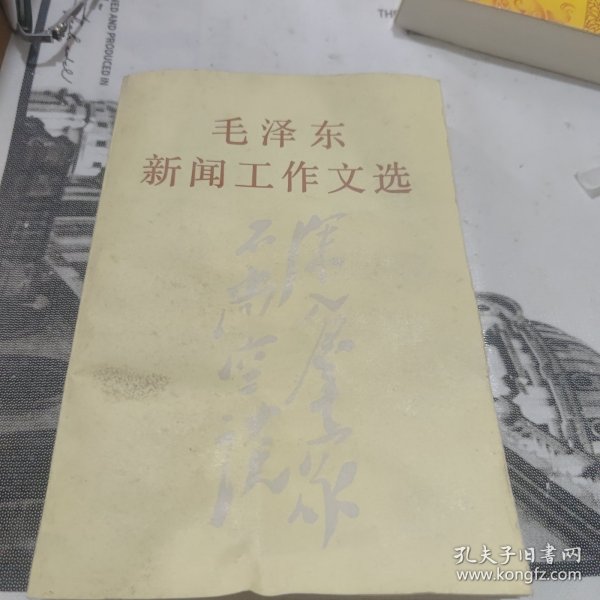 毛泽东
新闻工作文选
深入群众
不尚空谈
AND PRODUCED IN
TH
孔夫子旧书网
www.kongfz.com